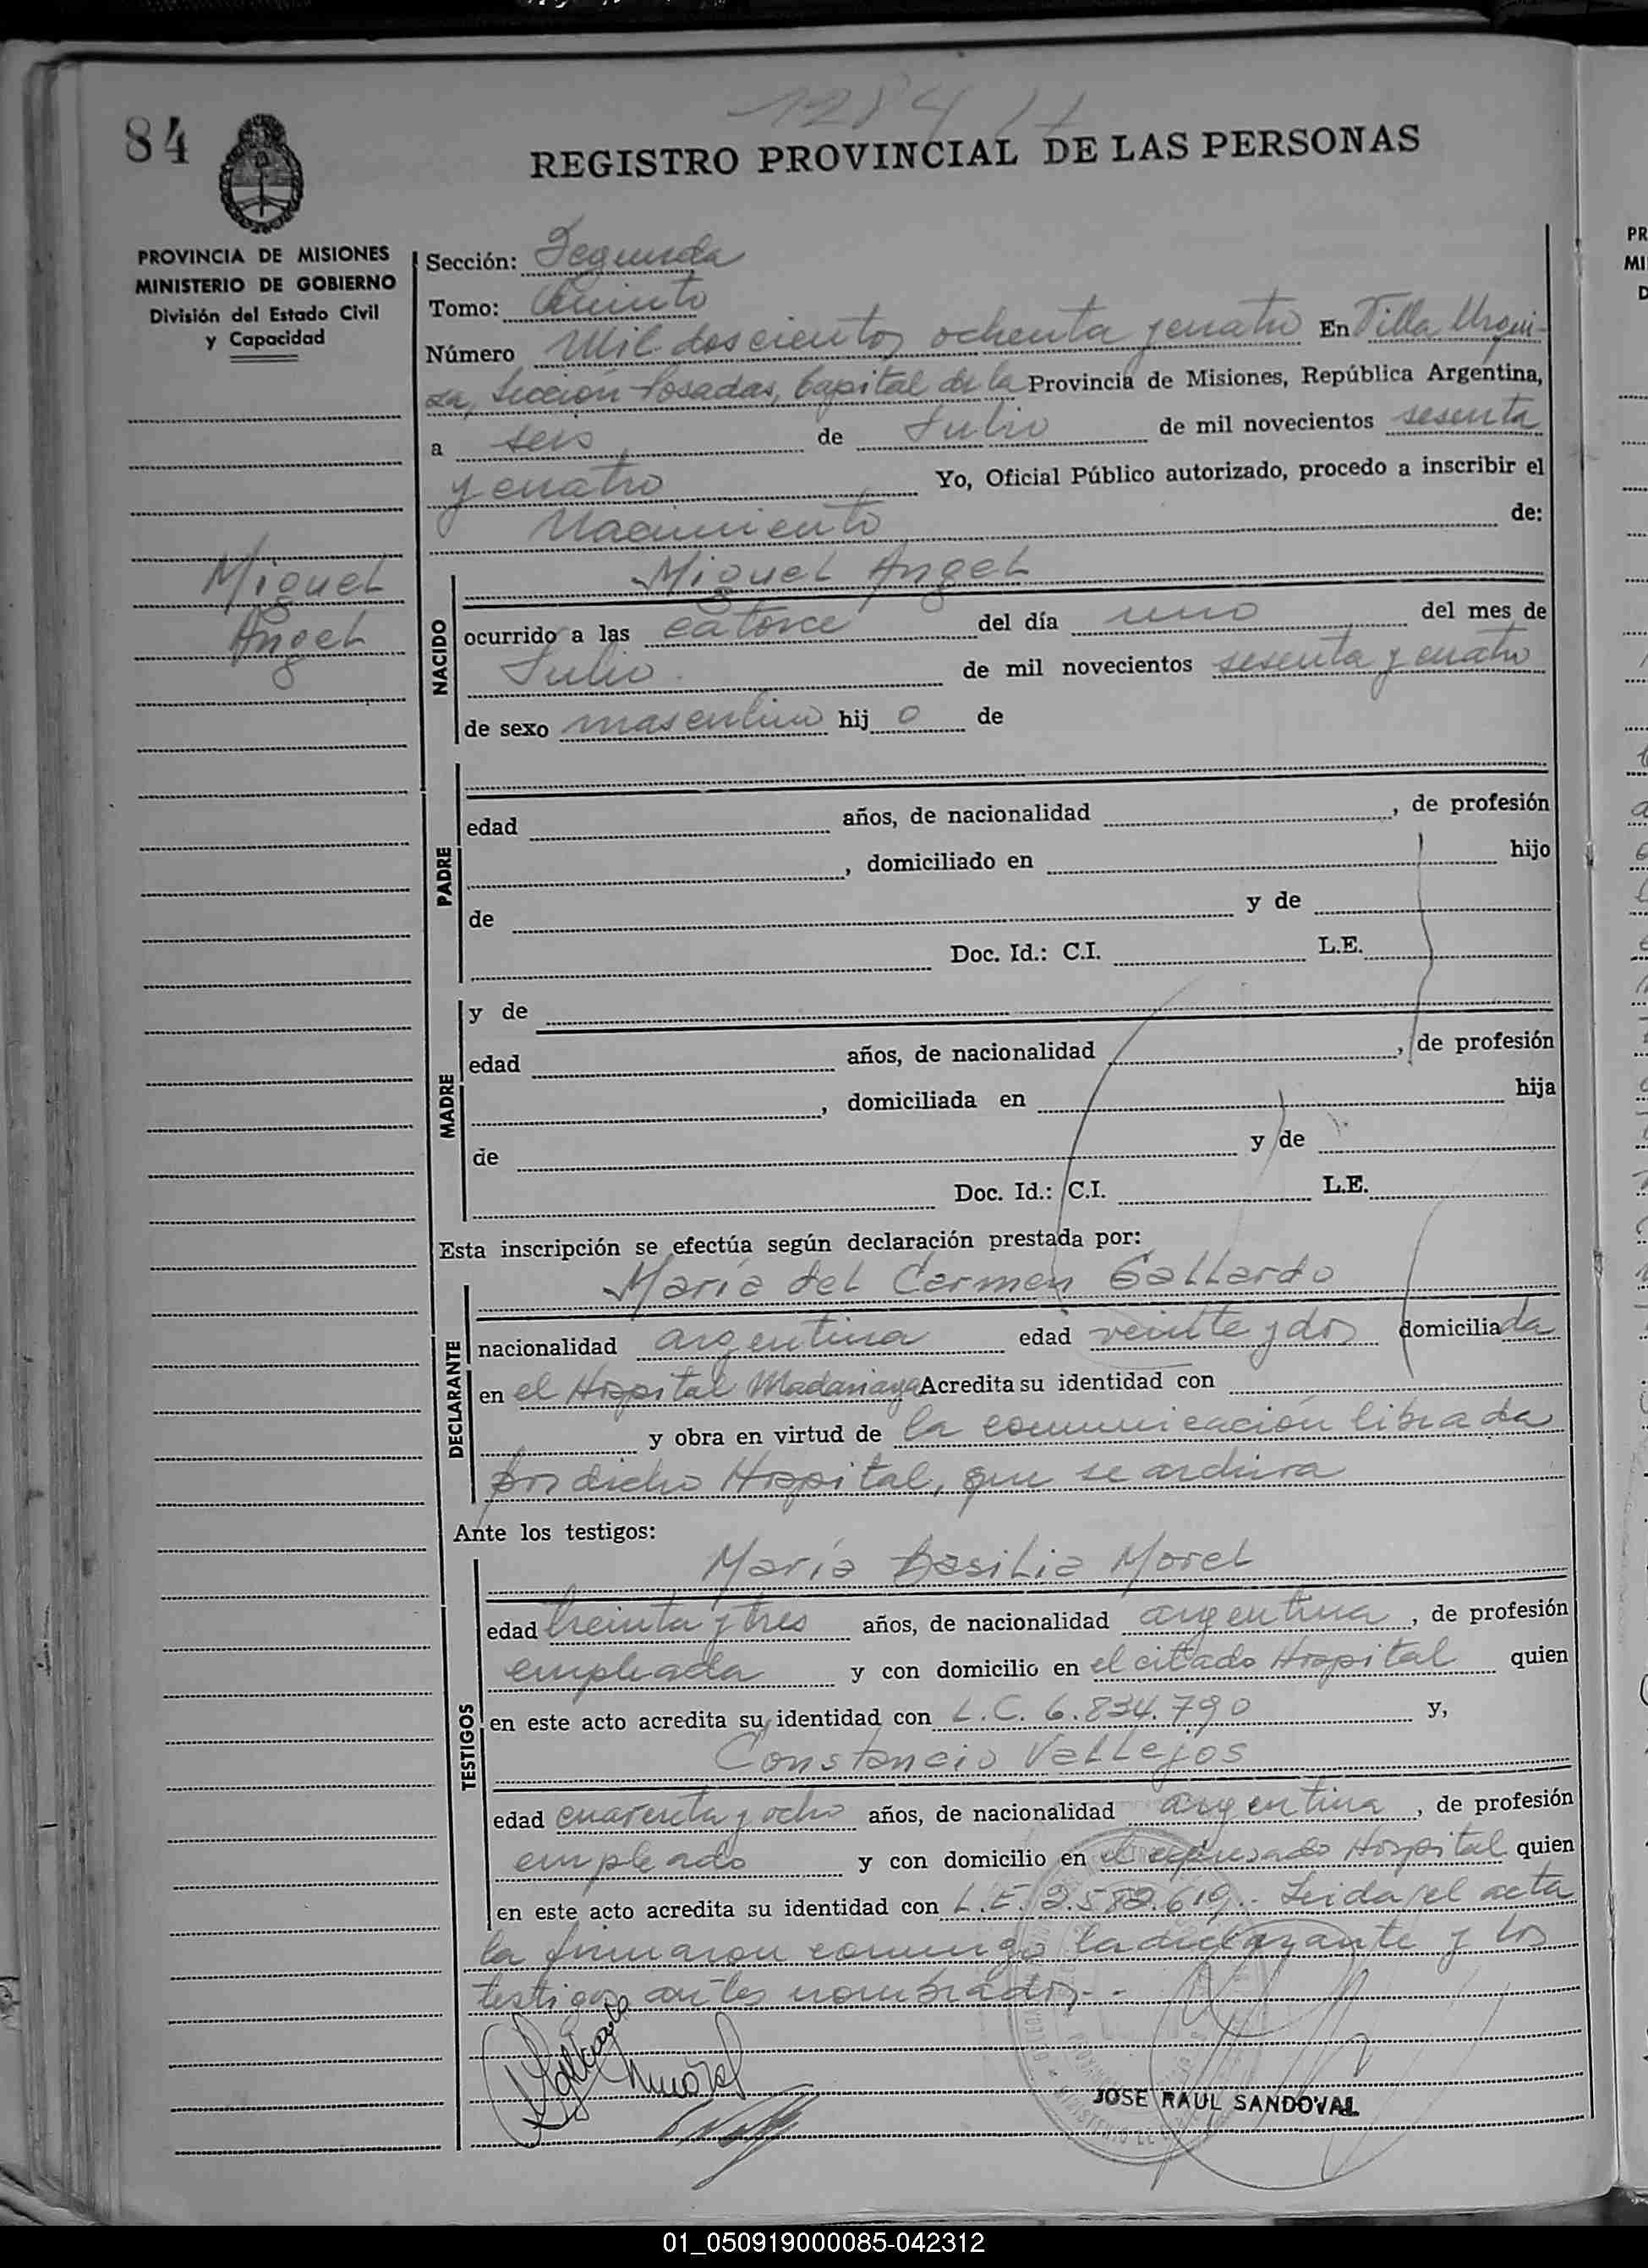 1284
84
REGISTRO PROVINCIAL DE LAS PERSONAS
PROVINCIA DE MISIONES
MINISTERIO DE GOBIERNO
División del Estado Civil
y Capacidad
Miguel
Angel
Sección: Segunda
Tomo: Quinto
Número Mil doscientos ochenta y cuatro En Villa Urqui-
za, Sección Posadas, Capital de la Provincia de Misiones, República Argentina,
a seis de Julio de mil novecientos sesenta
y cuatro Yo, Oficial Público autorizado, procedo a inscribir el
Nacimiento de:
NACIDO
Miguel Angel
ocurrido a las catorce del día uno del mes de
Julio de mil novecientos sesenta y cuatro
de sexo masculino hijo de
PADRE
edad años, de nacionalidad , de profesión
, domiciliado en hijo
de y de
Doc. Id.: C.I. L.E.
MADRE
y de
edad años, de nacionalidad , de profesión
, domiciliada en hija
de y de
Doc. Id.: C.I. L.E.
Esta inscripción se efectúa según declaración prestada por:
DECLARANTE
María del Carmen Gallardo
nacionalidad argentina edad veinte y dos domiciliada
en el Hospital Madariaga Acredita su identidad con
y obra en virtud de la comunicación librada
por dicho Hospital, que se archiva
Ante los testigos:
TESTIGOS
María Basilia Morel
edad treinta y tres años, de nacionalidad argentina, de profesión
empleada y con domicilio en el citado Hospital quien
en este acto acredita su identidad con L.C. 6.834.790 y,
Constancio Vallejos
edad cuarenta y ocho años, de nacionalidad argentina, de profesión
empleado y con domicilio en el expresado Hospital quien
en este acto acredita su identidad con L.E. 2.582.619.- Leida el acta
la firmaron conmigo la declarante y los
testigos antes nombrados.-
JOSE RAUL SANDOVAL
01_050919000085-042312
PR
MI
D